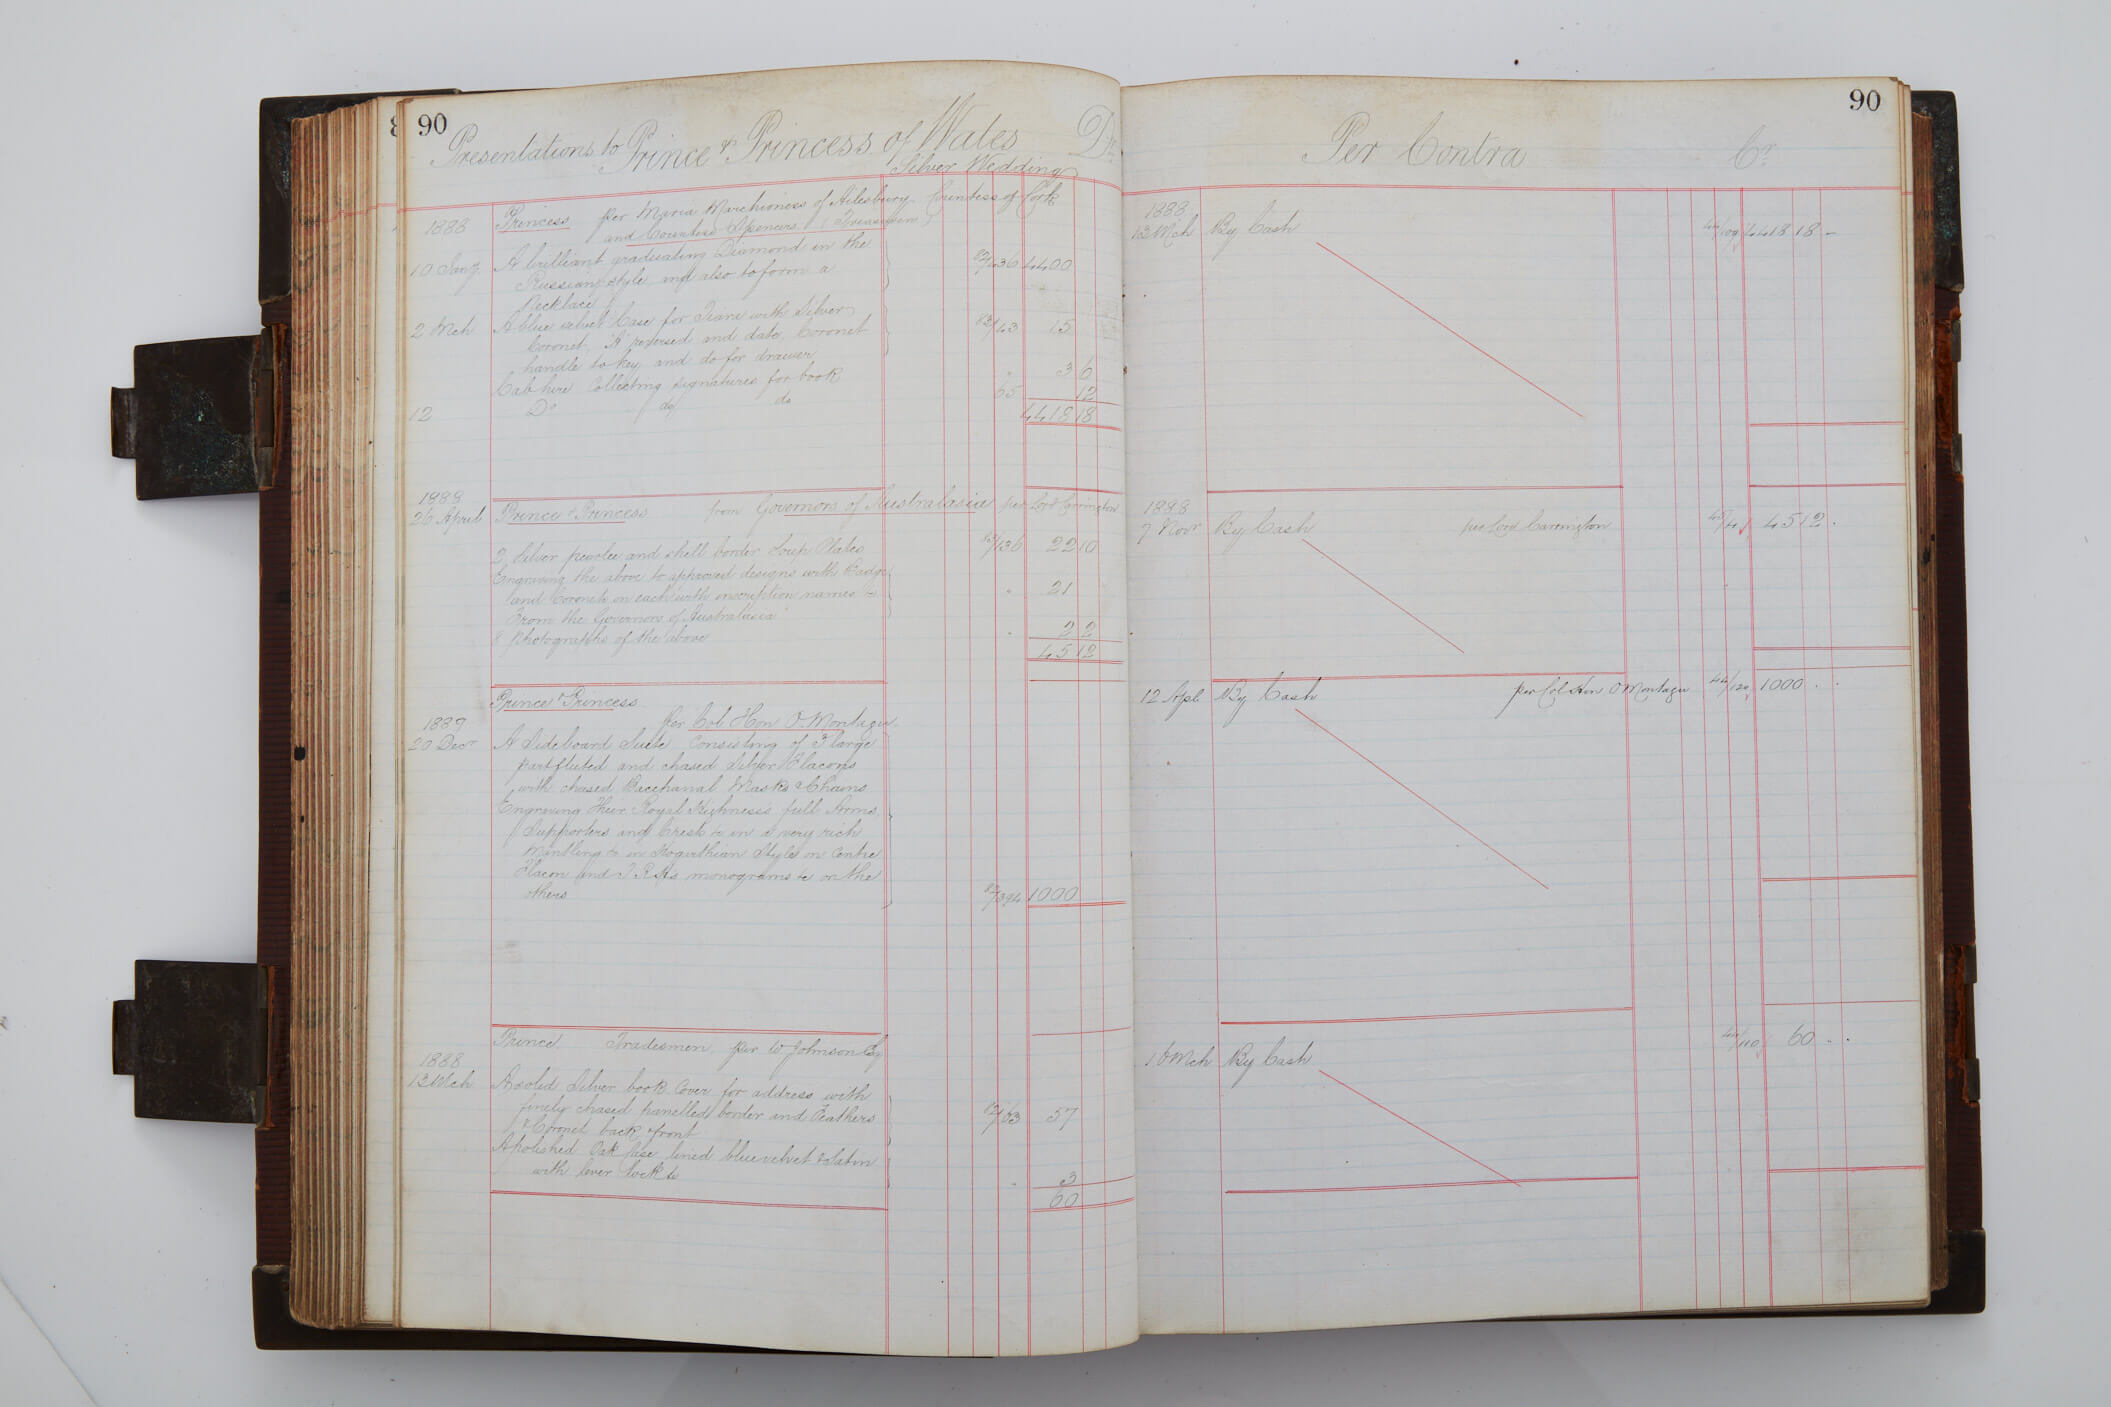 90
Presentations to Prince & Princess of Wales Dr
Silver Wedding
1888 Princess per Maria Marchioness of Ailesbury Countess of Cork
and Countess Spencer (Treasurer)
10 Jany A brilliant graduating Diamond in the 82/436 4400
Russian style and also to form a
Necklace
2 Mch A blue velvet Case for Tiara with Silver 83/43 15
Coronet, A reversed and date, Coronet
handle to key and do for drawer
Cab hire Collecting signatures for book " 3 6
12 Do do do 65 12
4418 18
1888
26 April Prince & Princess from Governors of Australasia per Lord Carrington
2 Silver pearlee and shell border Soup Plates 83/136 22 10
Engraving the above to approved designs with Badge
and Coronets on each with inscription names &c " 21
From the Governors of Australasia
8 Photographs of the above " 2 2
45 12
Prince & Princess
1887 per Col Hon O Montagu
20 Decr A Sideboard Suite Consisting of 3 large
part fluted and chased Silver Flacons
with chased Bacchanal Masks & Chains
Engraving Their Royal Highness's full Arms,
Supporters and Crests &c in a very rich
Mantling &c in Hogarthian Style on Centre
Flacon and T.R.H's monograms &c on the
others 82/394 1000
Prince Tradesmen per W Johnson Esq
1888
13 Mch A solid Silver book Cover for address with
finely chased panelled border and Feathers 83/63 57
& Coronet back & front
A polished Oak Case lined blue velvet & Satin
with lever lock &c " 3
60
90
Per Contra Cr
1888
13 Mch By Cash 44/109 4418 18 –
1888
7 Novr By Cash per Lord Carrington 45/4 45 12 .
12 Apl By Cash per Col Hon O Montagu 44/120 1000 . .
16 Mch By Cash 44/110 60 . .